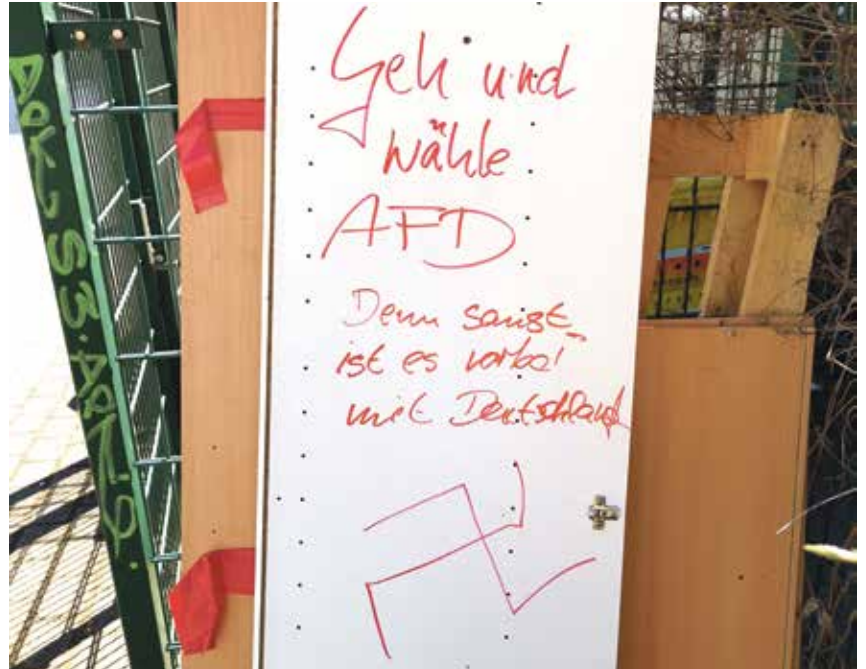 Geh und
wähle
AFD
Denn sonst
ist es vorbei
mit Deutschland